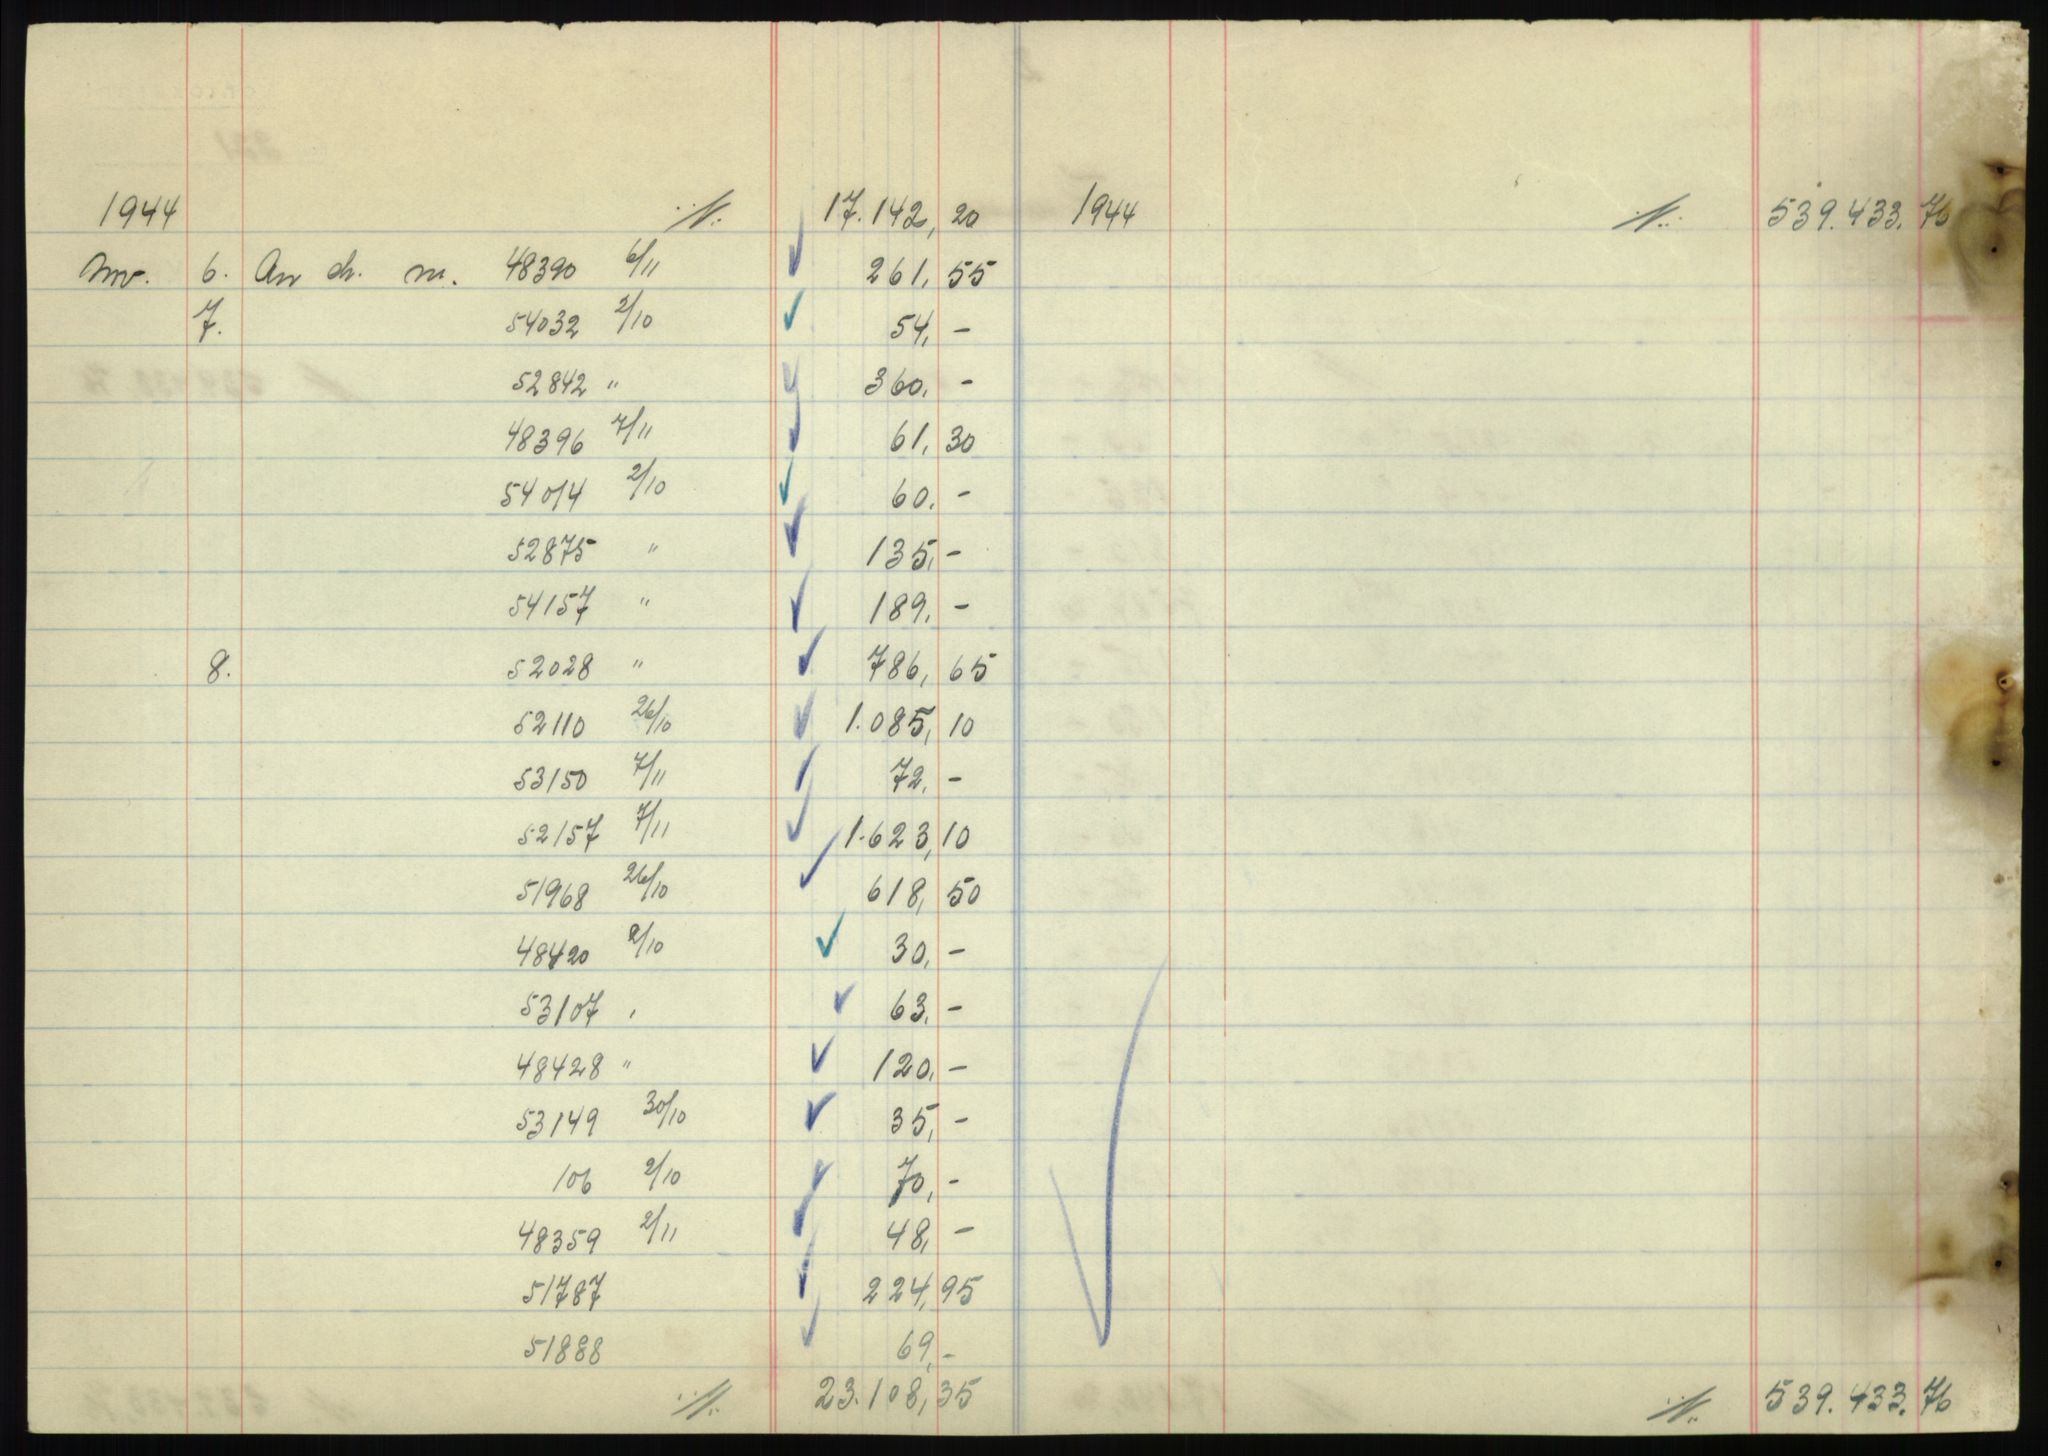 1944 ./. 17.142,20 1944 ./. 539.433.76
Nov. 6. An ch. nr. 48390 6/11 261,55
7. 54032 2/10 54,-
52842 " 360,-
48396 7/11 61,30
54014 2/10 60.-
52875 " 135,-
54157 " 189,-
8. 52028 " 786,65
52110 26/10 1.085,10
53150 7/11 72,-
52157 7/11 1.623,10
51968 26/10 618,50
48420 2/10 30,-
53107 " 63,-
48428 " 120,-
53149 30/10 35,-
106 2/10 70,-
48359 2/11 48,-
51787 224,95
51888 69,-
./. 23.108,35 ./. 539.433.76